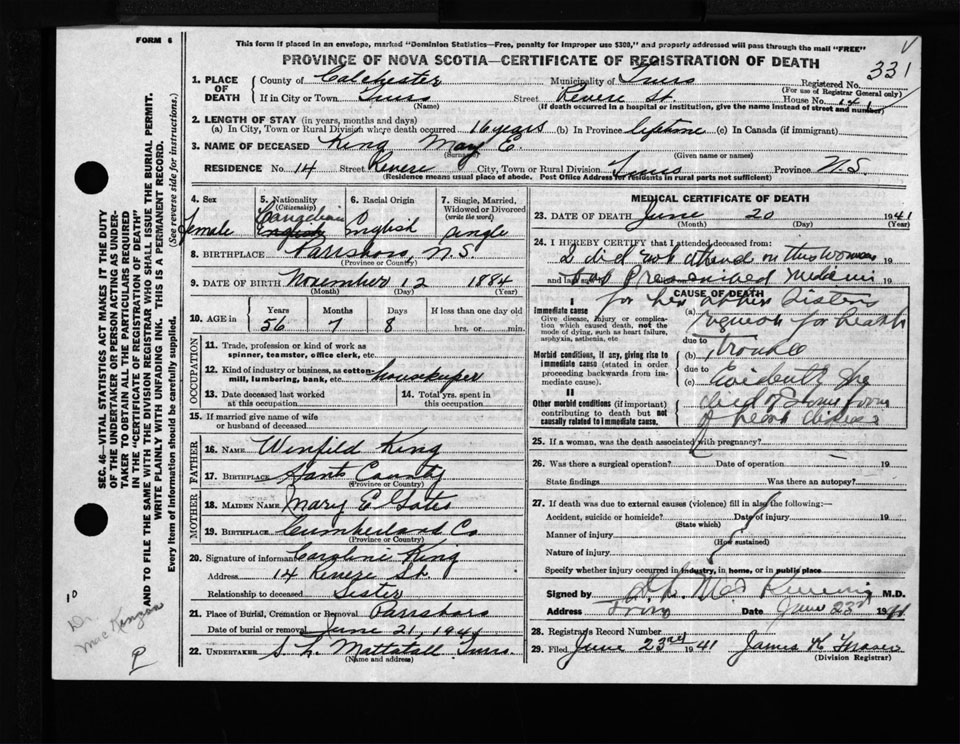 FORM 6
This form if placed in an envelope, marked "Dominion Statistics—Free, penalty for improper use $300," and properly addressed will pass through the mail "FREE"
PROVINCE OF NOVA SCOTIA—CERTIFICATE OF REGISTRATION OF DEATH
331
1. PLACE OF DEATH County of Colchester Municipality of Truro Registered No.
(For use of Registrar General only)
If in City or Town Truro Street Revere St. House No. 14
(Name) (If death occurred in a hospital or institution, give the name instead of street and number)
2. LENGTH OF STAY (in years, months and days)
(a) In City, Town or Rural Division where death occurred 16 years (b) In Province lifetime (c) In Canada (if immigrant)
3. NAME OF DECEASED King Mary E.
(Surname) (Given name or names)
RESIDENCE No. 14 Street Revere City, Town or Rural Division Truro Province N.S.
(Residence means usual place of abode. Post Office Address for residents in rural parts not sufficient)
4. Sex 5. Nationality (Citizenship) 6. Racial Origin 7. Single, Married, Widowed or Divorced (write the word)
Female Canadian English English Single
8. BIRTHPLACE Parrsboro, N.S.
(Province or Country)
9. DATE OF BIRTH November 12 1884
(Month) (Day) (Year)
10. AGE in Years Months Days If less than one day old
56 7 8 hrs. or min.
OCCUPATION
11. Trade, profession or kind of work as spinner, teamster, office clerk, etc.
12. Kind of industry or business, as cotton-mill, lumbering, bank, etc. housekeeper
13. Date deceased last worked at this occupation 14. Total yrs. spent in this occupation
15. If married give name of wife or husband of deceased
FATHER
16. NAME Winfield King
17. BIRTHPLACE Hants County
(Province or Country)
MOTHER
18. MAIDEN NAME Mary E
19. BIRTHPLACE Cumberland Co
(Province or Country)
20. Signature of informant Caroline King
Address 14 Revere St.
Relationship to deceased Sister
21. Place of Burial, Cremation or Removal Parrsboro
Date of burial or removal June 21, 1941
22. UNDERTAKER S. L. Mattatall Truro.
(Name and address)
MEDICAL CERTIFICATE OF DEATH
23. DATE OF DEATH June 20 1941
(Month) (Day) (Year)
24. I HEREBY CERTIFY that I attended deceased from:
I did not attend on this woman
and last saw Prescribed 19
CAUSE OF DEATH
for her at her Sisters
I
Immediate cause (a) request for heart
Give disease, injury or complication which caused death, not the mode of dying, such as heart failure, asphyxia, asthenia, etc
due to trouble
Morbid conditions, if any, giving rise to immediate cause (stated in order proceeding backwards from immediate cause).
(b)
due to
(c) Evidently she
II
died of some form
Other morbid conditions (if important) contributing to death but not causally related to immediate cause.
of heart disease
25. If a woman, was the death associated with pregnancy?
26. Was there a surgical operation? Date of operation 19
State findings Was there an autopsy?
27. If death was due to external causes (violence) fill in also the following:—
Accident, suicide or homicide? Date of injury 19
(State which)
Manner of injury
(How sustained)
Nature of injury
Specify whether injury occurred in industry, in home, or in public place
Signed by M.D.
Address Truro Date June 23rd 1941
28. Registry's Record Number
29. Filed June 23rd 1941 James K Fraser
(Division Registrar)
SEC. 46—VITAL STATISTICS ACT MAKES IT THE DUTY OF THE UNDERTAKER OR PERSON ACTING AS UNDERTAKER TO OBTAIN ALL THE PARTICULARS REQUIRED IN THE "CERTIFICATE OF REGISTRATION OF DEATH" AND TO FILE THE SAME WITH THE DIVISION REGISTRAR WHO SHALL ISSUE THE BURIAL PERMIT.
WRITE PLAINLY WITH UNFADING INK. THIS IS A PERMANENT RECORD.
Every item of information should be carefully supplied. (See reverse side for instructions.)
10
Dr
MacKenzie
P